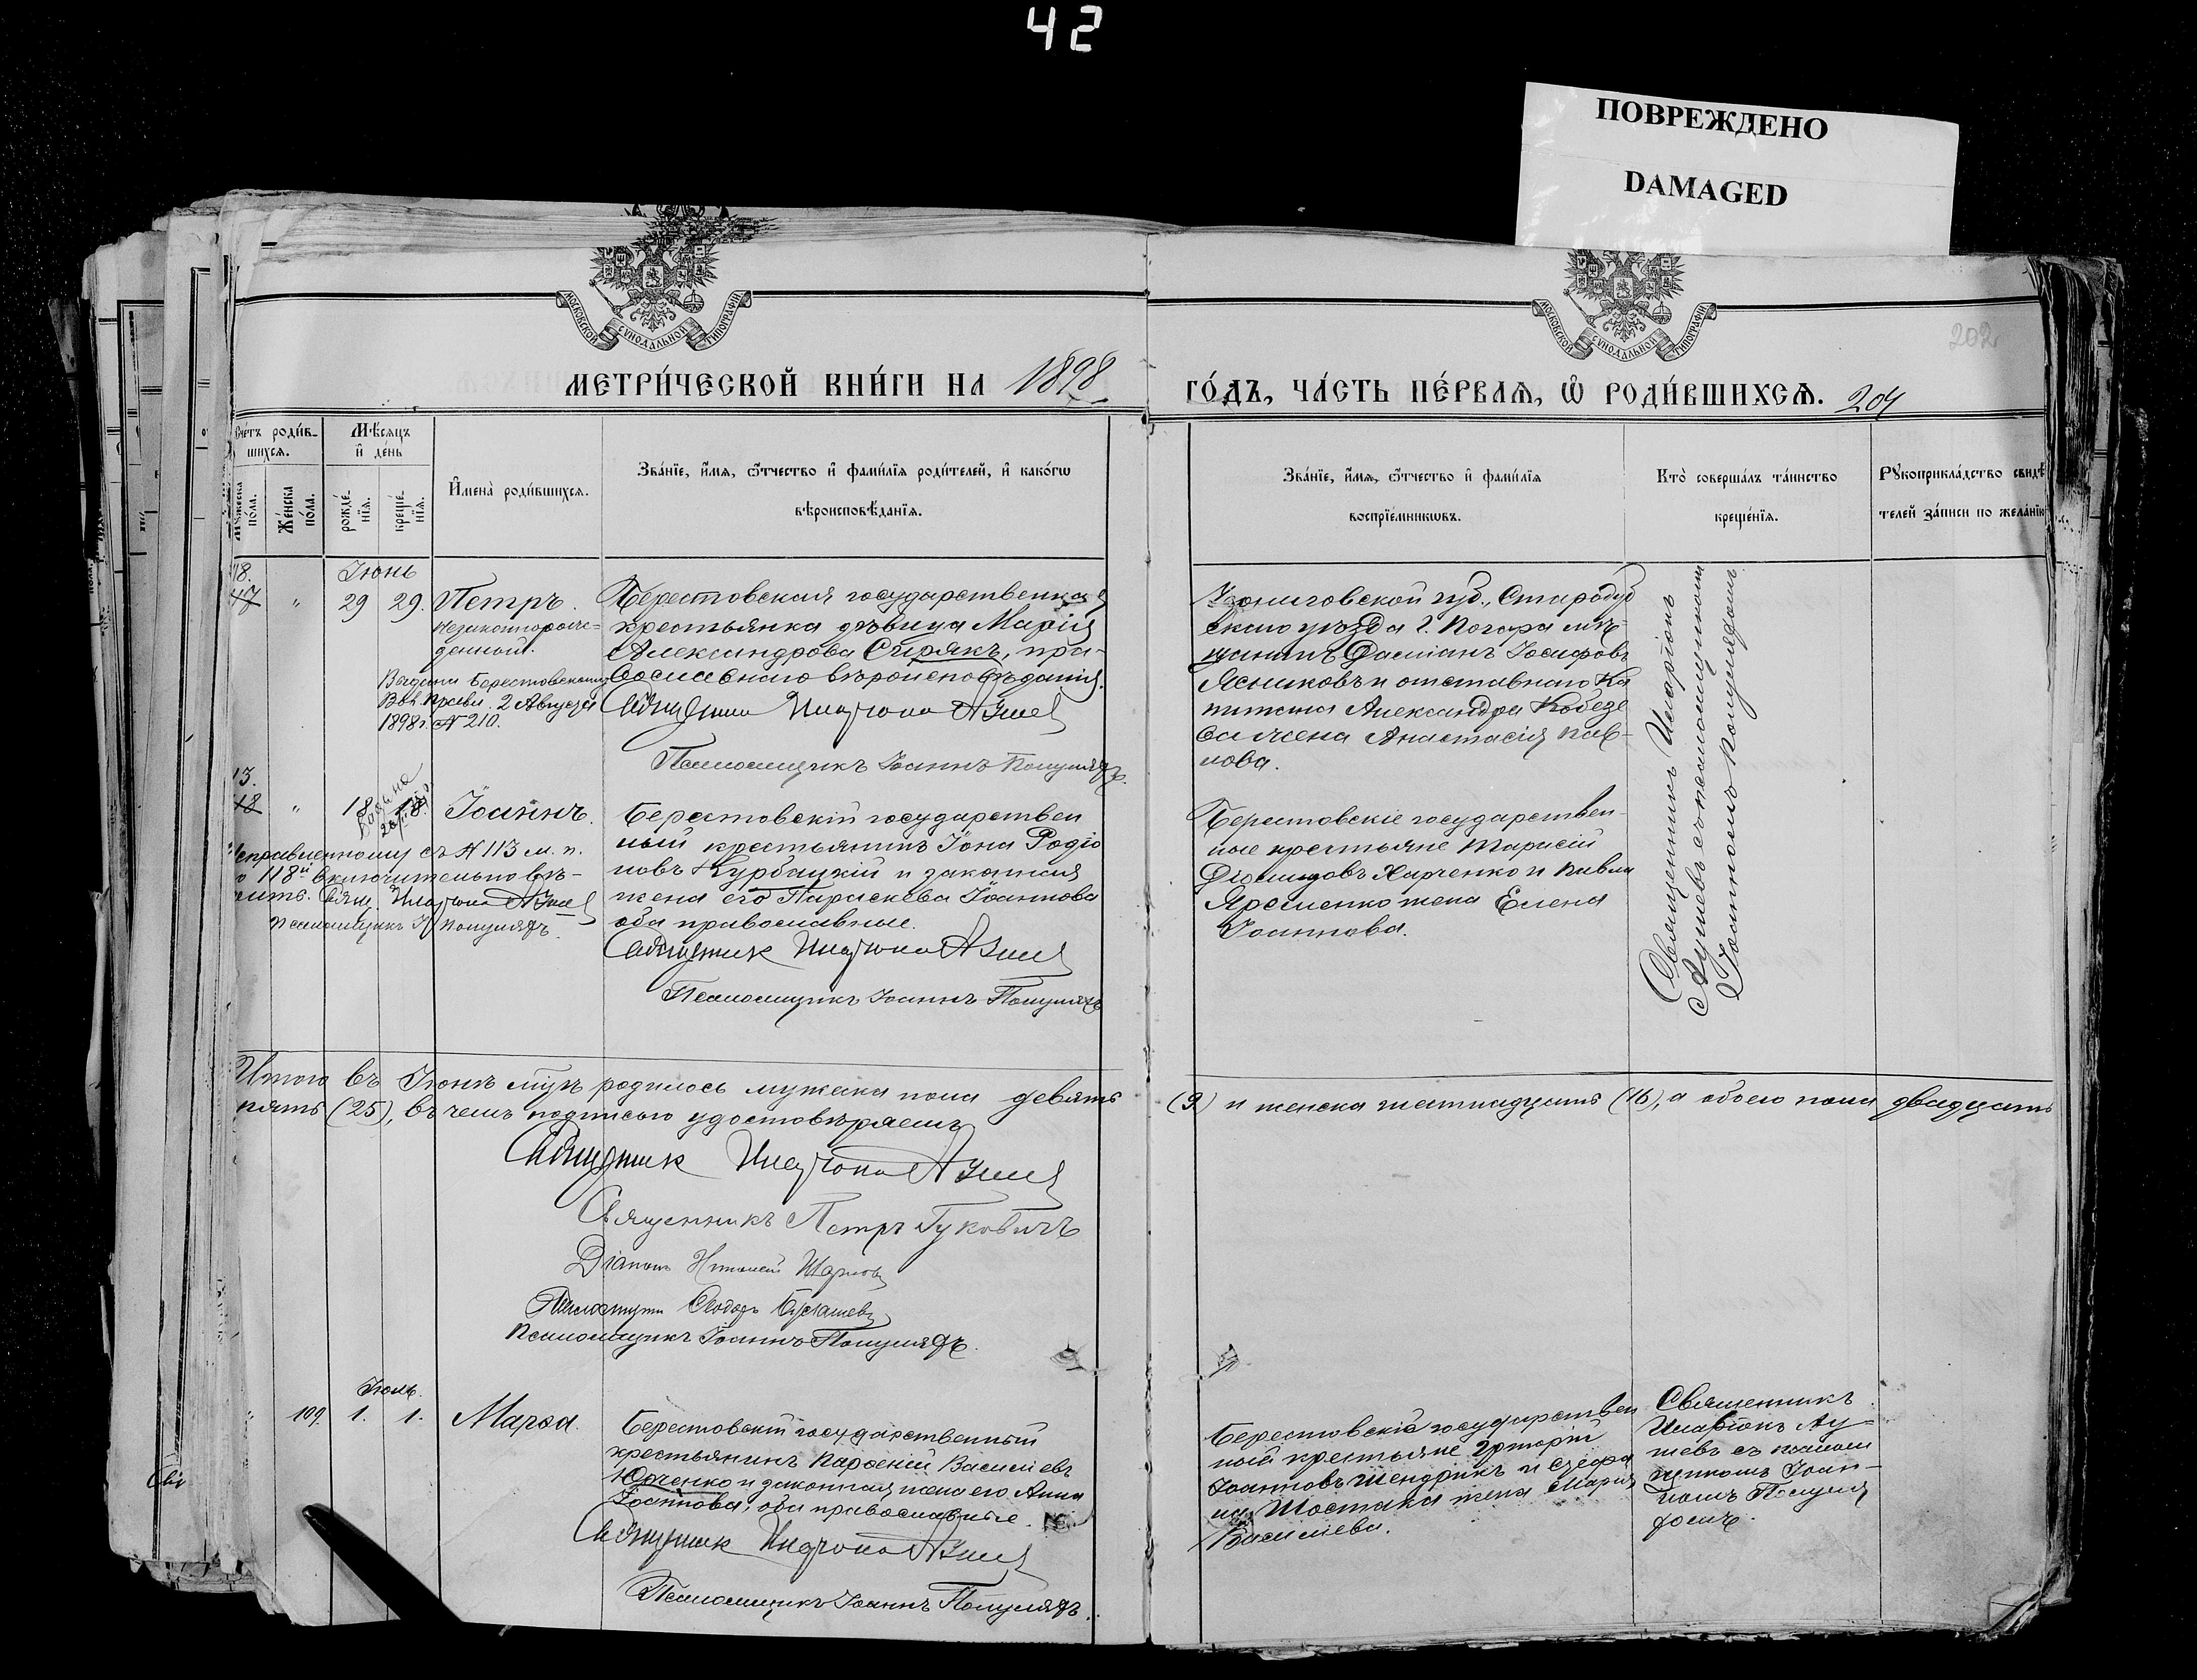 42
ПОВРЕЖДЕНО
DAMAGED
МОСКОВСКОЙ СУНОДАЛЬНОЙ ТИПОГРАФІИ
МОСКОВСКОЙ СУНОДАЛЬНОЙ ТИПОГРАФІИ
202
МЕТРИ́ЧЕСКОЙ КНИ́ГИ НА 1898
ГО́ДЪ, ЧА́СТЬ ПЕ́РВАѦ, Ѡ҆ РОДИ́ВШИХСѦ. 204
Счетъ роди́в-
шихсѧ.
Мѣсѧцъ
и҆ де́нь
Мꙋжеска
по́ла.
Же́нска
по́ла.
рожде́-
нїѧ.
креще́-
нїѧ.
И҆мена̀ роди́вшихсѧ.
Зва́нїе, и҆́мѧ, ѻ҆́тчество и҆ фами́лїѧ роди́телей, и҆ како́гѡ
вѣроисповѣ́данїѧ.
Зва́нїе, и҆́мѧ, ѻ҆́тчество и҆ фами́лїѧ
воспрїе́мникѡвъ.
Кто̀ соверша́лъ та́инство
креще́нїѧ.
Рꙋкоприкла́дство свидѣ́
телей за́писи по жела́нїю
Іюнь
18.
47 " 29 29. Петръ.
незаконнорож-
денный.
Выдана Берестовскому
Вол. Правл. 2 Августа
1898 г. № 210.
Берестовская государственная
крестьянка дѣвица Марія
Александрова Стрякъ, пра-
вославнаго вѣроисповѣданія.
Священникъ Иларіонъ
Псаломщикъ Іоаннъ Полулядъ.
Черниговской губ., Стародуб
скаго уѣзда г. Погара мѣ-
щанинъ Даміанъ Іосифовъ
Ясниковъ и отставнаго ка
питана Александра Кобезе
ва жена Анастасія Пав-
лова.
Священникъ Иларіонъ
съ псаломщикомъ
Іоанномъ Полулядомъ
13.
48 " 18 18. Іоаннъ.
Исправленному съ № 113 м. п.
по 118й включительно вѣ-
рить. Свящ. Иларіонъ
псаломщикъ І. Полулядъ.
Берестовскій государствен
ный крестьянинъ Іона Родіо
новъ Курбацкій и законная
жена его Параскева Іоаннова
оба православные.
Священникъ Иларіонъ
Псаломщикъ Іоаннъ Полулядъ
Берестовскіе государствен-
ные крестьяне Тарасій
Діомидовъ Харченко и Павла
Яременко жена Елена
Іоаннова.
Итого въ Іюнѣ мцѣ родилось мужеска пола девять (9) и женска шестнадцать (16), а обоего пола двадцать
пять (25), въ чемъ подписью удостовѣряемъ
Священникъ Иларіонъ
Священникъ Петръ Гуковичъ
Діаконъ
Псаломщикъ Ѳеодоръ
Псаломщикъ Іоаннъ Полулядъ.
Іюль.
109. 1. 1. Марѳа.
Берестовскій государственный
крестьянинъ Парѳеній Василіевъ
Юрченко и законная жена его Анна
Іоаннова, оба православные.
Священникъ Иларіонъ
Псаломщикъ Іоаннъ Полулядъ.
Берестовскіе государствен
ные крестьяне Григорій
Іоанновъ Шендрикъ и Стефа
на Шостака жена Марія
Василіева.
Священникъ
Иларіонъ
съ псалом
щикомъ Іоан-
номъ Полуля
домъ.